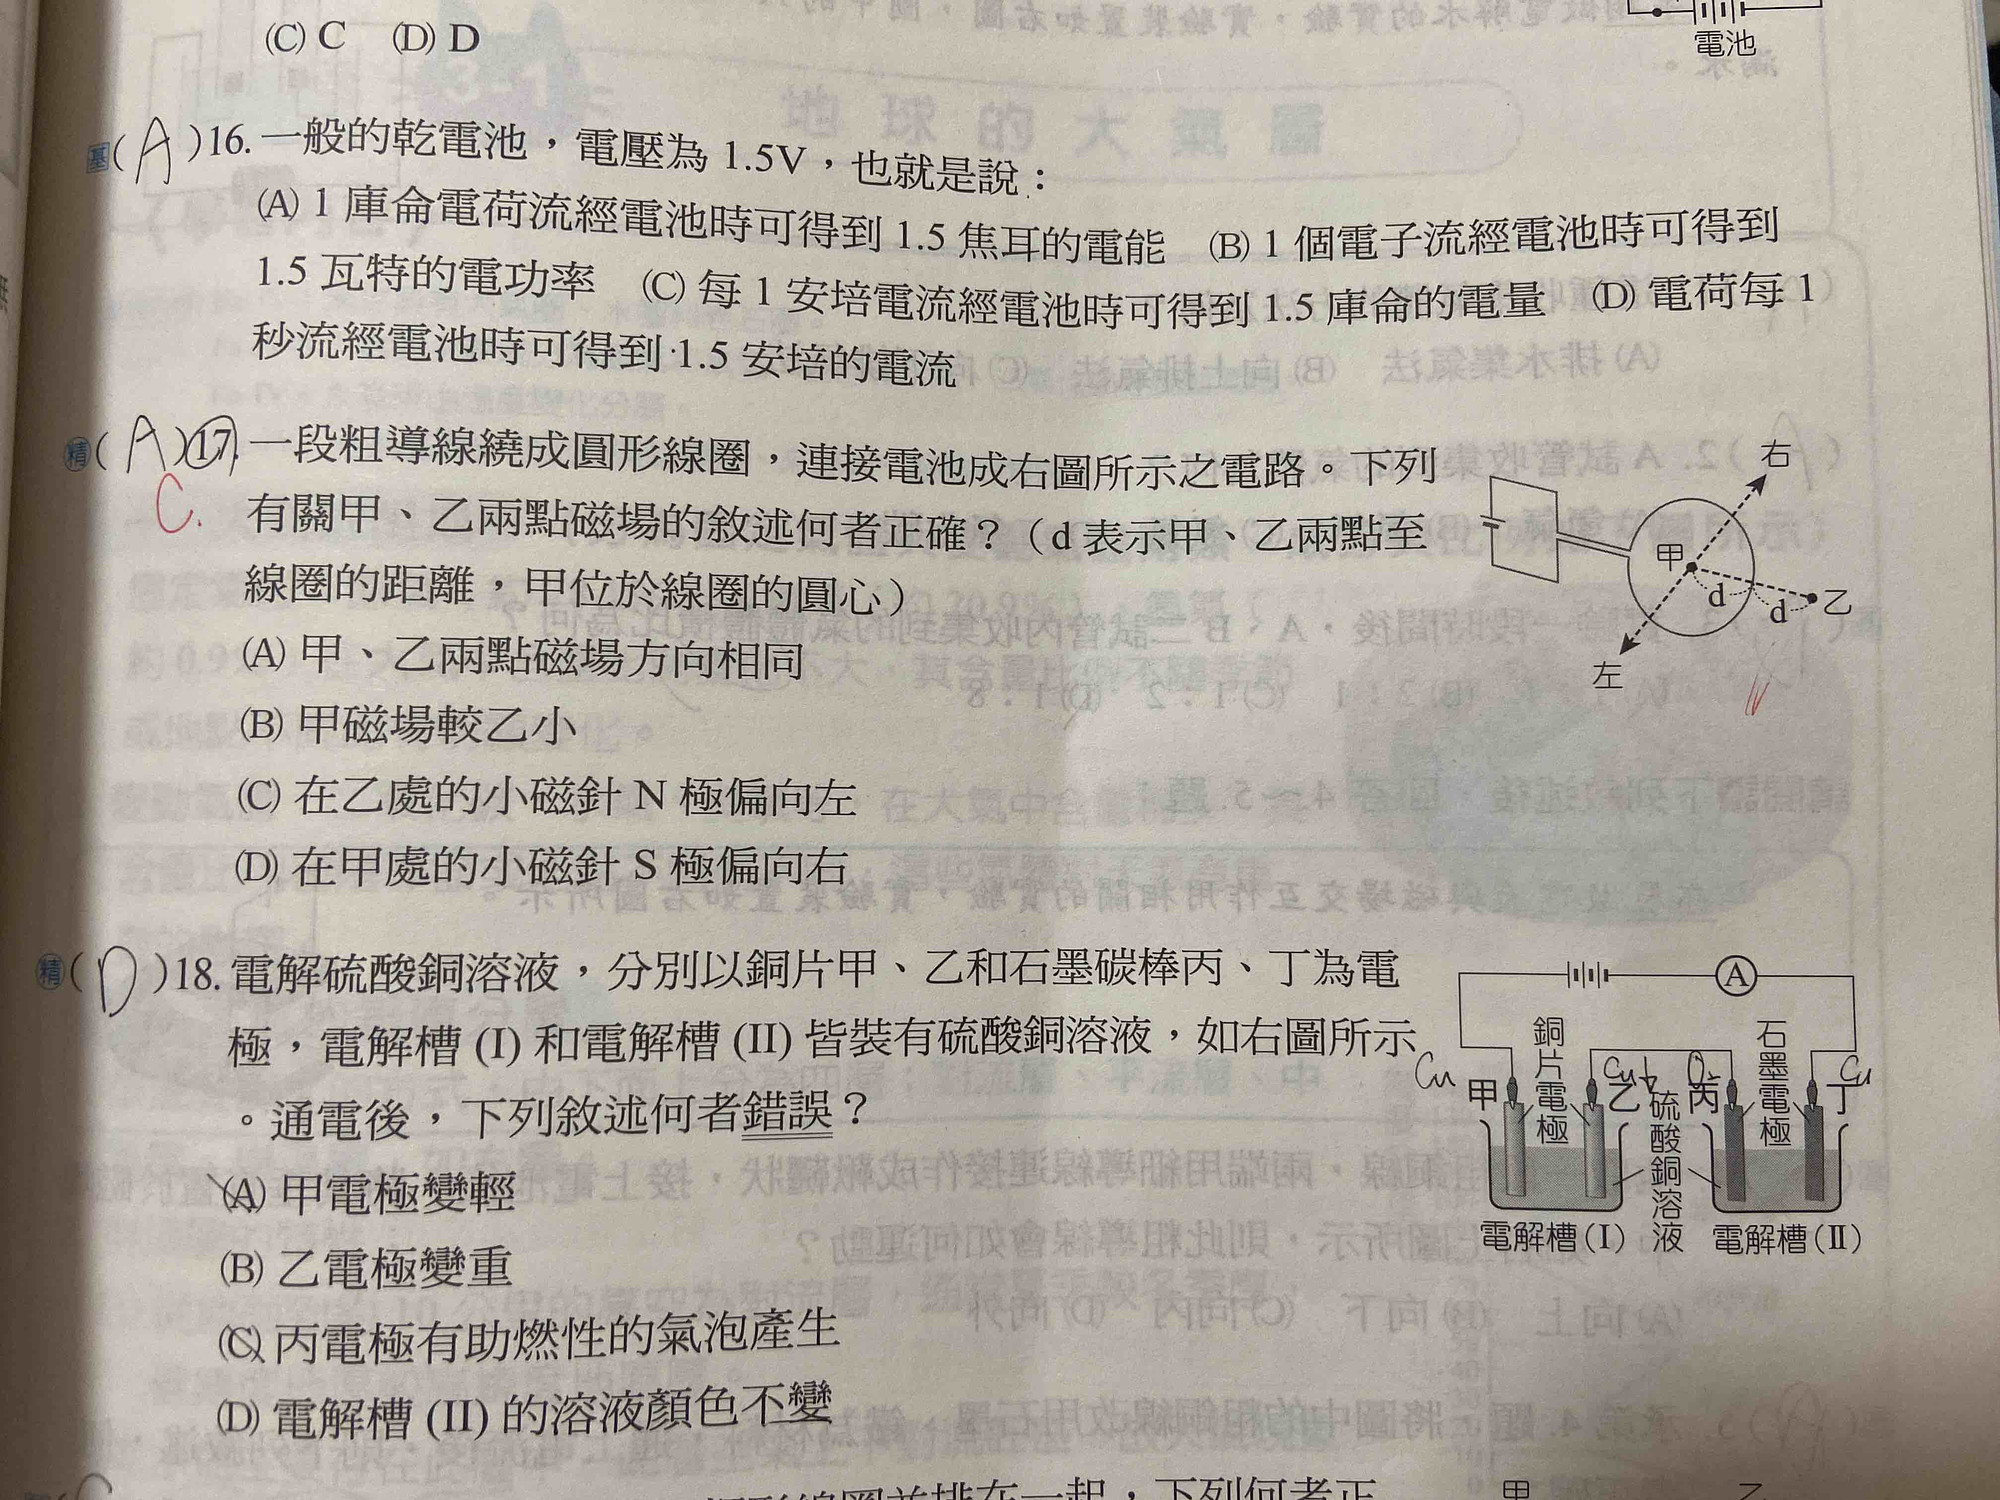 (C) C (D) D
電池
基( A )16. 一般的乾電池，電壓為 1.5V，也就是說：
(A) 1 庫侖電荷流經電池時可得到 1.5 焦耳的電能 (B) 1 個電子流經電池時可得到
1.5 瓦特的電功率 (C) 每 1 安培電流流經電池時可得到 1.5 庫侖的電量 (D) 電荷每 1
秒流經電池時可得到 1.5 安培的電流
精( A )17. 一段粗導線繞成圓形線圈，連接電池成右圖所示之電路。下列
C.
有關甲、乙兩點磁場的敘述何者正確？（d 表示甲、乙兩點至
線圈的距離，甲位於線圈的圓心）
(A) 甲、乙兩點磁場方向相同
(B) 甲磁場較乙小
(C) 在乙處的小磁針 N 極偏向左
(D) 在甲處的小磁針 S 極偏向右
右
甲
d
d
乙
左
精( D )18. 電解硫酸銅溶液，分別以銅片甲、乙和石墨碳棒丙、丁為電
極，電解槽 (I) 和電解槽 (II) 皆裝有硫酸銅溶液，如右圖所示
。通電後，下列敘述何者錯誤？
(A) 甲電極變輕
(B) 乙電極變重
(C) 丙電極有助燃性的氣泡產生
(D) 電解槽 (II) 的溶液顏色不變
A
Cu
甲
銅片電極
Cu
乙
硫酸銅溶液
O₂
丙
石墨電極
Cu
丁
電解槽(I)
電解槽(II)